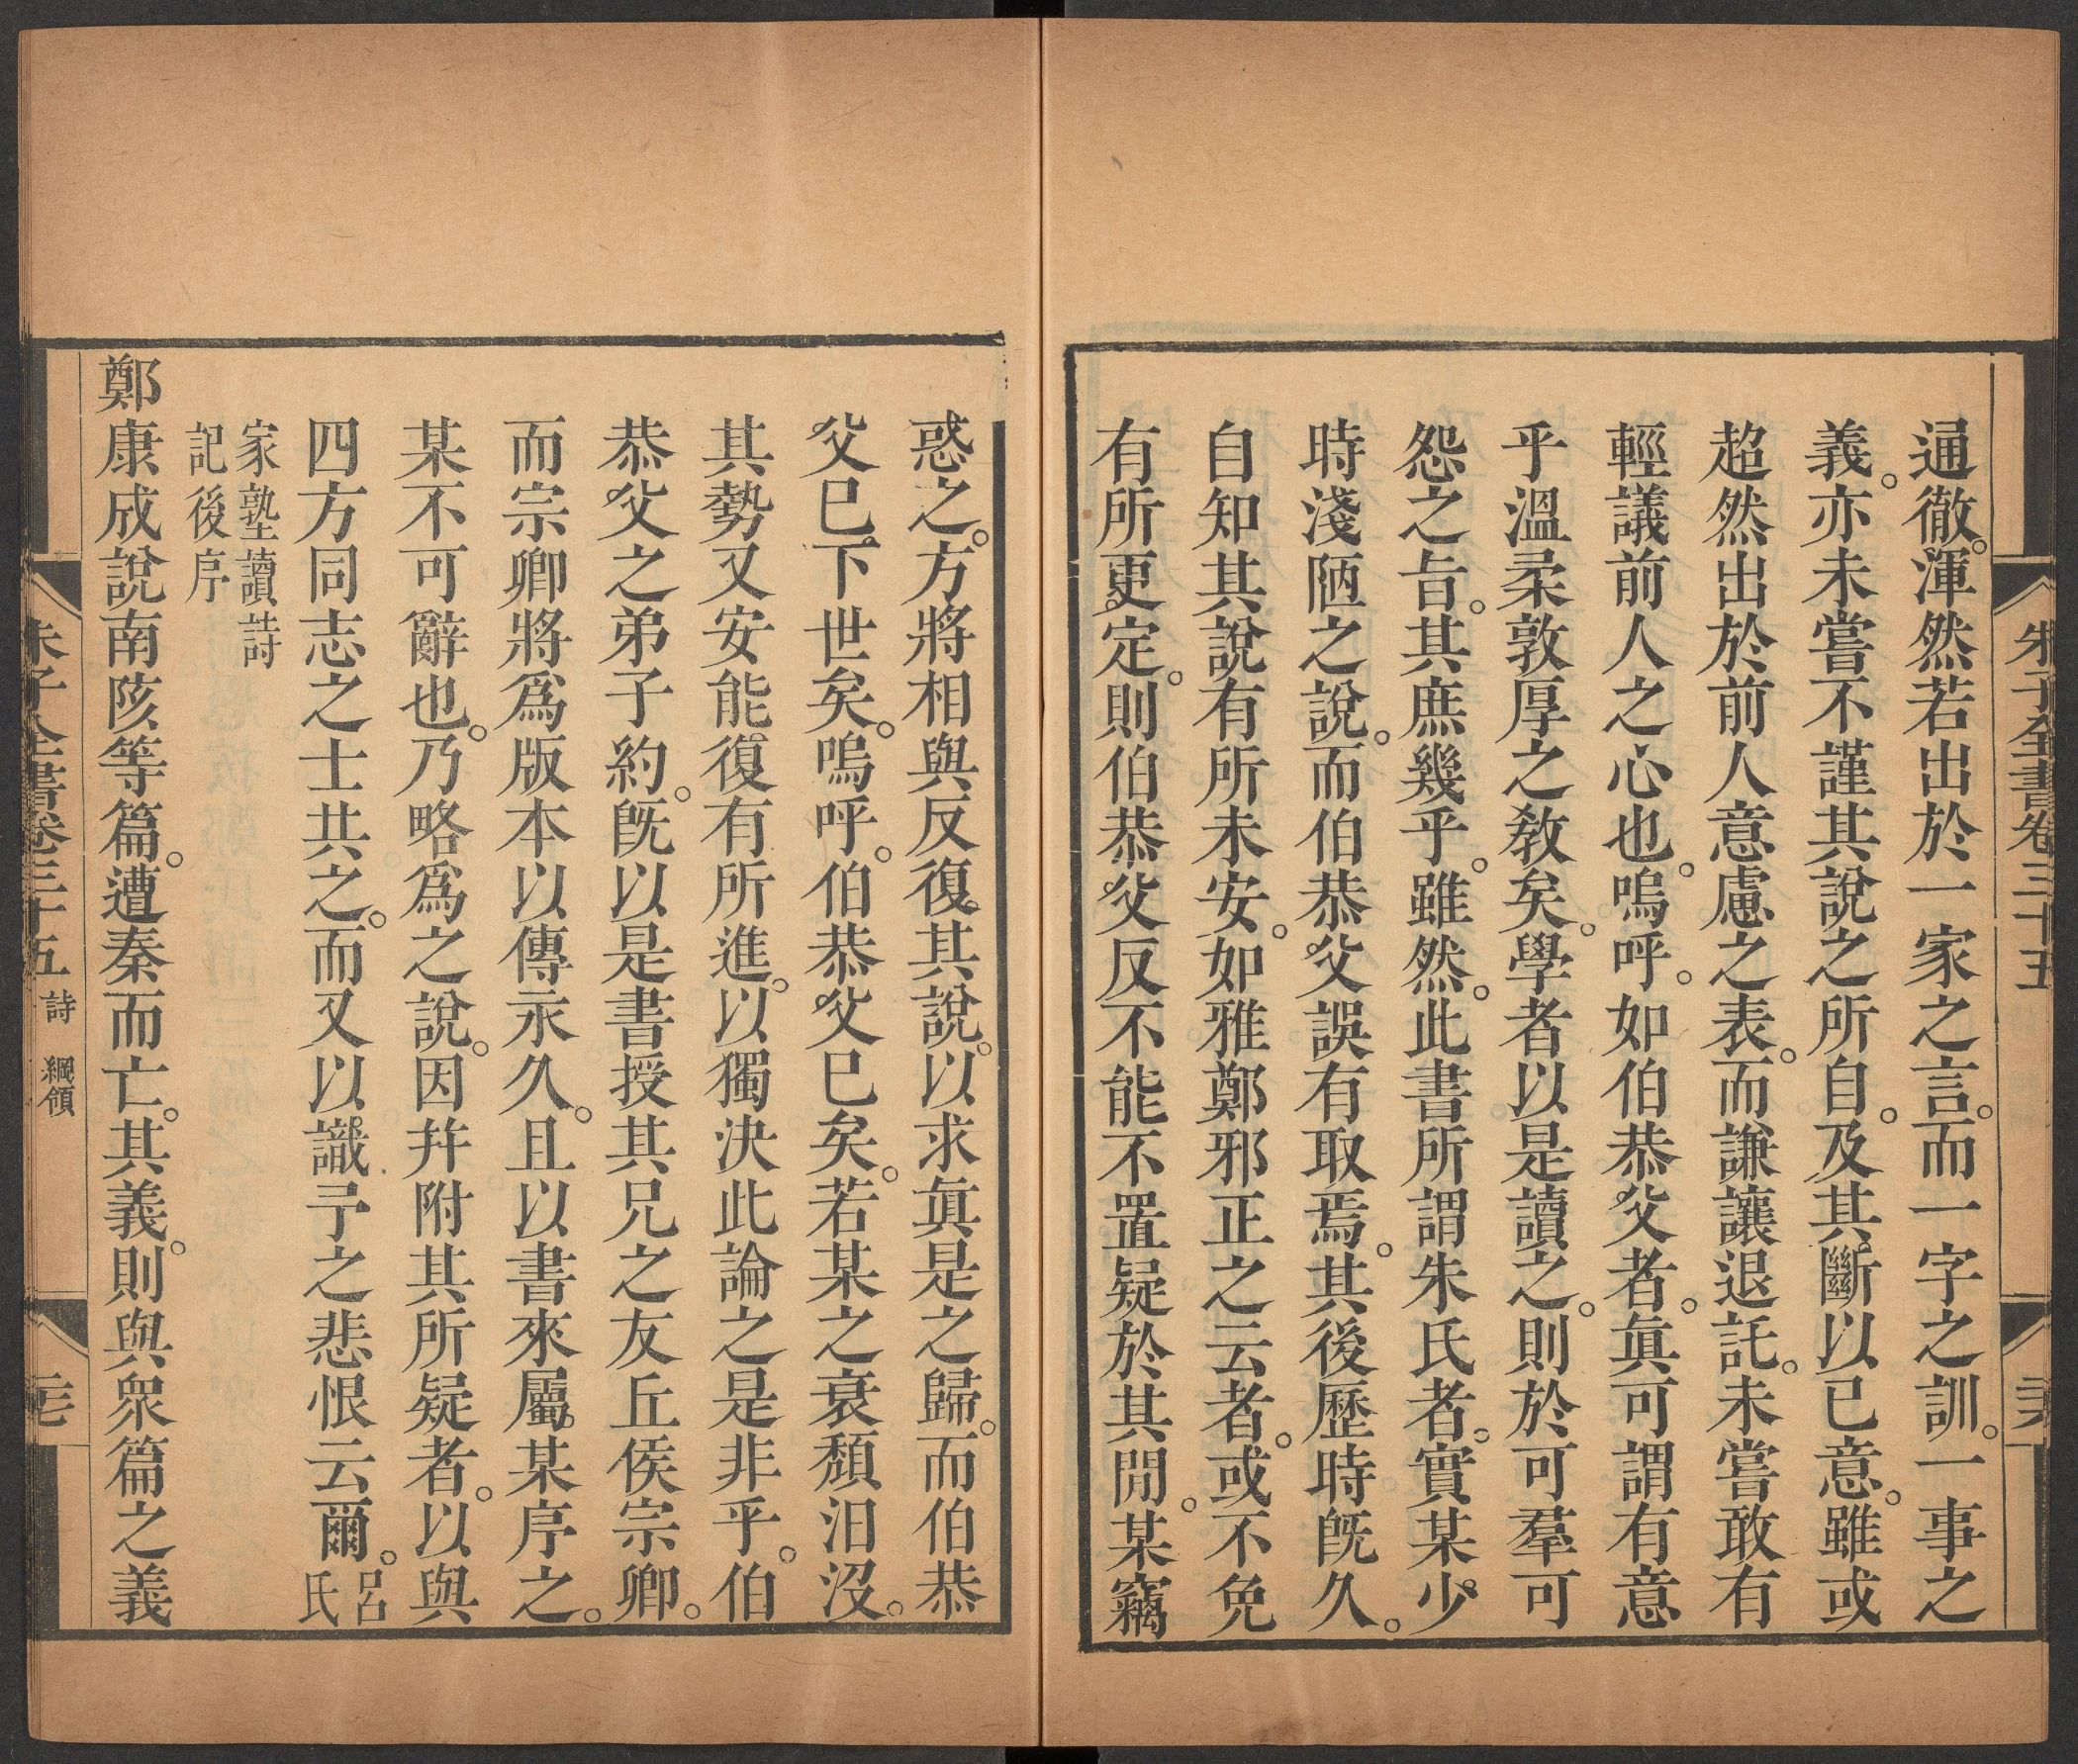 朱子全書卷三十五
通徹。渾然若出於一家之言。而一字之訓。一事之
義。亦未嘗不謹其說之所自。及其斷以已意。雖或
超然出於前人意慮之表。而謙讓退託。未嘗敢有
輕議前人之心也。嗚呼。如伯恭父者。眞可謂有意
乎溫柔敦厚之敎矣。學者以是讀之。則於可羣可
怨之旨。其庶幾乎。雖然。此書所謂朱氏者。實某少
時淺陋之說。而伯恭父誤有取焉。其後歷時旣久。
自知其說有所未安。如雅鄭邪正之云者。或不免
有所更定。則伯恭父反不能不置疑於其閒。某竊
惑之。方將相與反復其說。以求眞是之歸。而伯恭
父已下世矣。嗚呼。伯恭父已矣。若某之衰頹汨沒。
其勢又安能復有所進。以獨決此論之是非乎。伯
恭父之弟子約。旣以是書授其兄之友丘侯宗卿。
而宗卿將爲版本以傳永久。且以書來屬某序之。
某不可辭也。乃略爲之說。因幷附其所疑者。以與
四方同志之士共之。而又以識予之悲恨云爾。呂氏
家塾讀詩
記後序
鄭康成說南陔等篇。遭秦而亡。其義。則與眾篇之義
朱子全書卷三十五 詩 綱領